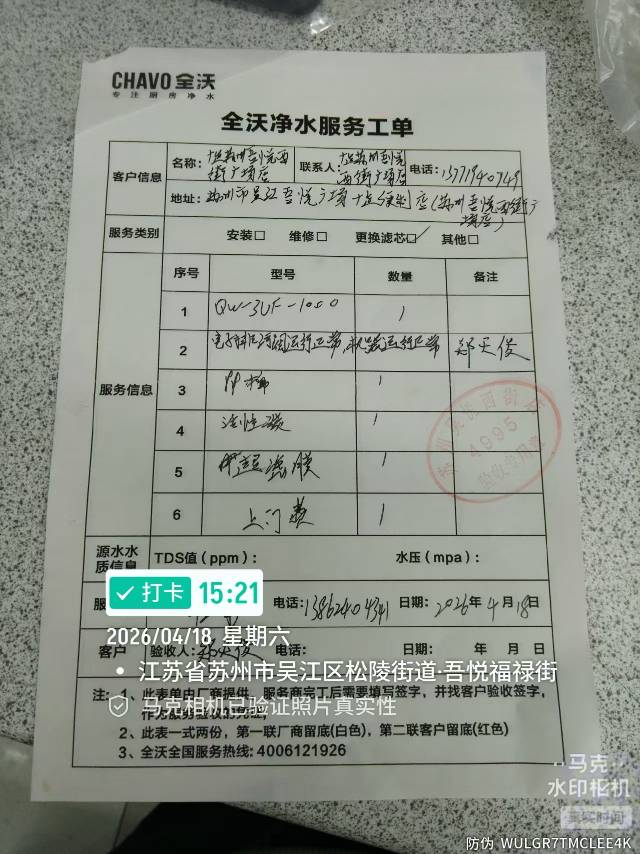 CHAVO 全沃
专注厨房净水
全沃净水服务工单
客户信息
名称：
联系人：
电话：13771940749
地址：苏州市吴江吾悦广场
服务类别
安装□ 维修□ 更换滤芯□✓ 其他□
服务信息
序号 型号 数量 备注
1 QW-3UF-1000 1
2 运行正常 郑天俊
3 PP棉 1
4 活性碳 1
5 超滤膜 1
6 上门费 1
4995
源水水质信息
TDS值（ppm）： 水压（mpa）：
电话：13862404341 日期：2026年4月18日
打卡 15:21
2026/04/18 星期六
客户 验收人：郑天俊 电话： 日期： 年 月 日
江苏省苏州市吴江区松陵街道·吾悦福禄街
马克相机已验证照片真实性
注：1、此表单由厂商提供，服务商完工后需要填写签字，并找客户验收签字，
作为服务验收的凭证；
2、此表一式两份，第一联厂商留底(白色)，第二联客户留底(红色)
3、全沃全国服务热线：4006121926
马克
水印相机
真实时间
防伪 WULGR7TMCLEE4K